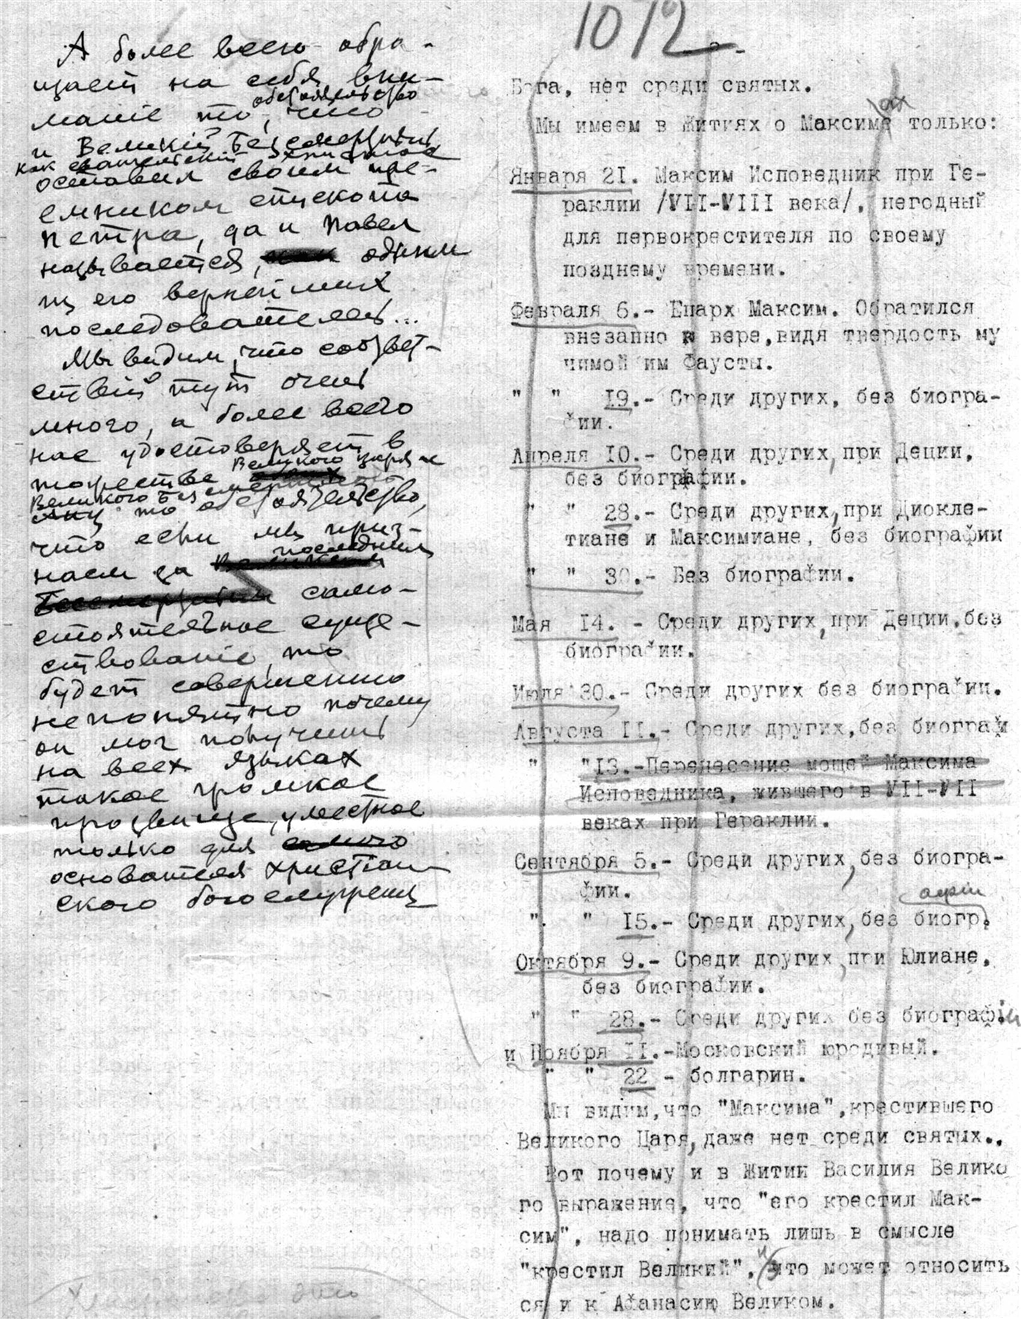 1012
А более всего обра-
щает на себя вни-
мание то обстоятельство, что
и Великий Безсмертный
как евангельский Христос
оставил своим пре-
емником епископа
Петра, да и Павел
называется, одним
из его вернейших
последователей...
Мы видим, что соответ-
ствий тут очень
много, а более всего
нас удостоверяет в
тождестве Великого царя и
Великого Безсмертного
то обстоятельство,
что если мы приз-
наем за последним
само-
стоятельное суще-
ствованіе, то
будет совершенно
непонятно почему
он мог получить
на всех языках
такое громкое
прозвище, уместное
только для
основателя христіан
ского богослуженія
Бога, нет среди святых.
Мы имеем в Житиях о Максимах только:
Января 21. Максим Исповедник при Ге-
раклии /VII-VIII века/, негодный
для первокрестителя по своему
позднему времени.
Февраля 6.- Епарх Максим. Обратился
внезапно к вере, видя твердость му
чимой им Фаусты.
" " 19.- Среди других, без биогра-
фии.
Апреля 10.- Среди других, при Деции,
без биографии.
" " 28.- Среди других, при Диокле-
тиане и Максимиане, без биографии
" " 30.- Без биографии.
Мая 14. - Среди других, при Деции, без
биографии.
Июля 30.- Среди других без биографии.
Августа 11.- Среди других, без биограф
" "13.-Перенесение мощей Максима
Исповедника, жившего в VII-VII
веках при Гераклии.
Сентября 5.- Среди других, без биогра-
фии.
" " 15.- Среди других, без биогр.афии
Октября 9.- Среди других, при Юлиане,
без биографии.
" " 28.- Среди других без биографии
и Ноября 11.-Московский юродивый.
" " 22 - болгарин.
Мы видим, что "Максима", крестившего
Великого Царя, даже нет среди святых..
Вот почему и в Житии Василия Велико
го выражение, что "его крестил Мак-
сим", надо понимать лишь в смысле
"крестил Великий", и это может относить
ся и к Афанасию Великом.